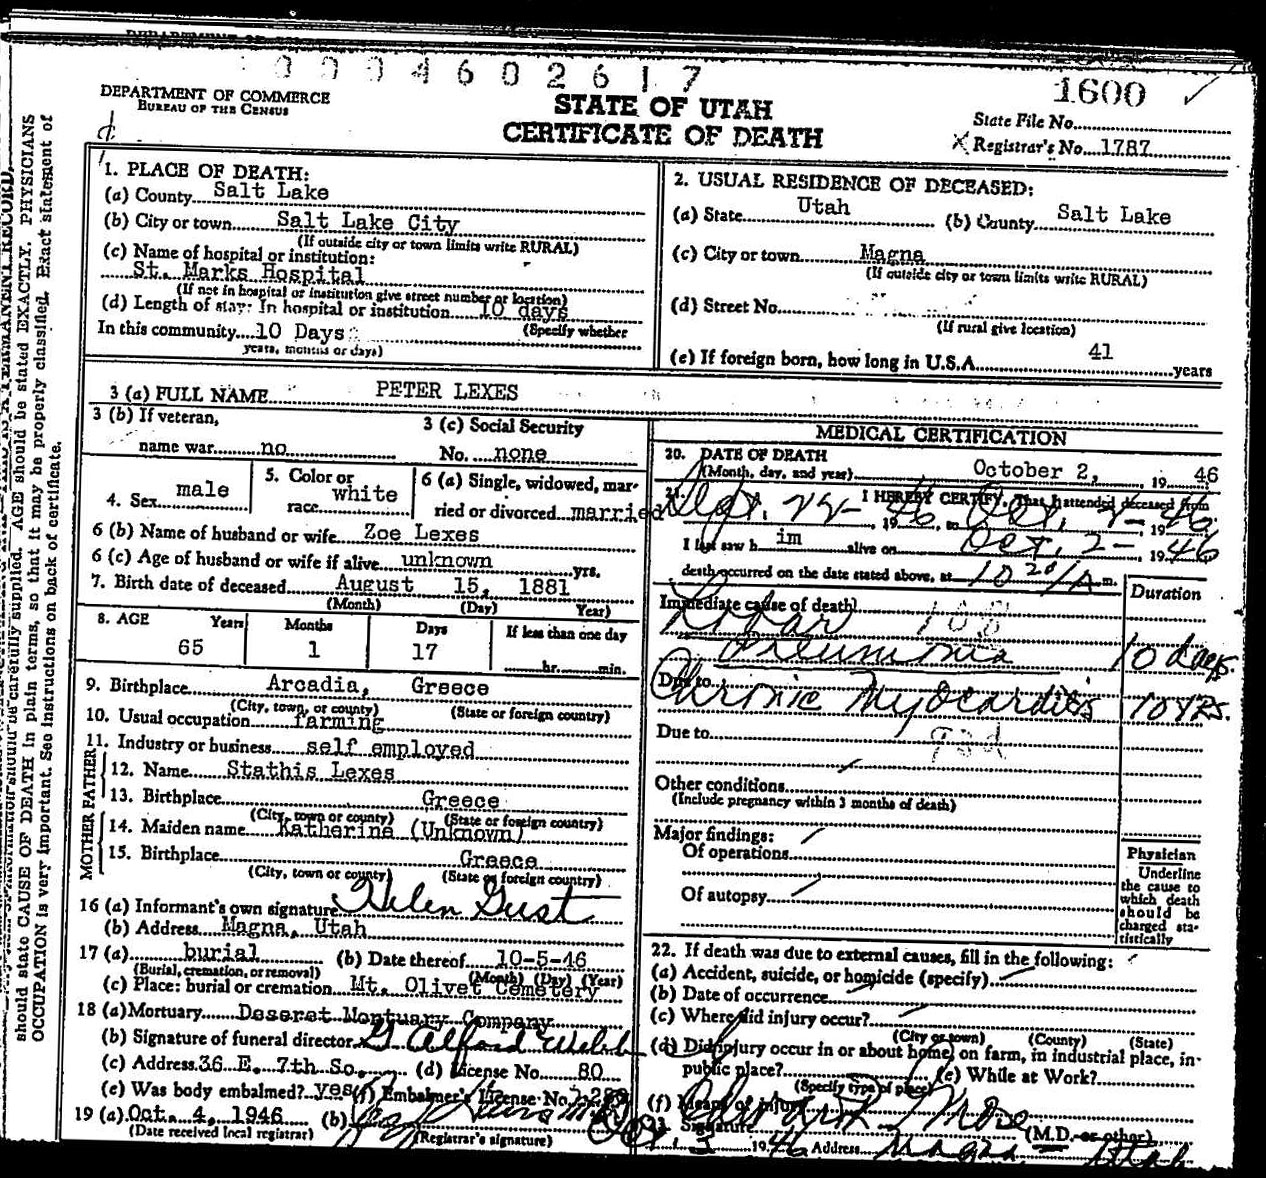 0004602617
1600
DEPARTMENT OF COMMERCE
BUREAU OF THE CENSUS
STATE OF UTAH
CERTIFICATE OF DEATH
State File No.
Registrar's No. 1787
1. PLACE OF DEATH:
(a) County Salt Lake
(b) City or town Salt Lake City
(If outside city or town limits write RURAL)
(c) Name of hospital or institution:
St. Marks Hospital
(If not in hospital or institution give street number or location)
(d) Length of stay: In hospital or institution 10 days
(Specify whether
In this community 10 Days
years, months or days)
2. USUAL RESIDENCE OF DECEASED:
(a) State Utah (b) County Salt Lake
(c) City or town Magna
(If outside city or town limits write RURAL)
(d) Street No.
(If rural give location)
(e) If foreign born, how long in U.S.A. 41 years
3 (a) FULL NAME PETER LEXES
3 (b) If veteran,
name war no
3 (c) Social Security
No. none
4. Sex male
5. Color or
race white
6 (a) Single, widowed, mar-
ried or divorced married
6 (b) Name of husband or wife Zoe Lexes
6 (c) Age of husband or wife if alive unknown yrs.
7. Birth date of deceased August 15, 1881
(Month) (Day) Year)
8. AGE Years Months Days If less than one day
65 1 17 hr. min.
9. Birthplace Arcadia, Greece
(City, town, or county) (State or foreign country)
10. Usual occupation farming
11. Industry or business self employed
FATHER
12. Name Stathis Lexes
13. Birthplace Greece
(City, town or county) (State or foreign country)
MOTHER
14. Maiden name Katherina (Unknown)
15. Birthplace Greece
(City, town or county) (State or foreign country)
16 (a) Informant's own signature Helen Gust
(b) Address Magna, Utah
17 (a) burial (b) Date thereof 10-5-46
(Burial, cremation, or removal) (Month) (Day) (Year)
(c) Place: burial or cremation Mt. Olivet Cemetery
18 (a) Mortuary Deseret Mortuary Company
(b) Signature of funeral director Alford Webb
(c) Address 36 E. 7th So. (d) License No. 80
(e) Was body embalmed? yes (f) Embalmer's License No.
19 (a) Oct. 4, 1946 (b)
(Date received local registrar) (Registrar's signature)
MEDICAL CERTIFICATION
20. DATE OF DEATH
(Month, day, and year) October 2, 1946
21. I HEREBY CERTIFY, That I attended deceased from
1946, to Oct. 2- 1946
I last saw h im alive on Oct. 2- 1946
death occurred on the date stated above, at 10 20/A m.
Duration
Immediate cause of death
Lobar 108
Pneumonia 10 days.
Due to
Chronic Myocarditis 10 yrs.
Due to 93d
Other conditions
(Include pregnancy within 3 months of death)
Major findings:
Of operations
Of autopsy
Physician
Underline
the cause to
which death
should be
charged sta-
tistically
22. If death was due to external causes, fill in the following:
(a) Accident, suicide, or homicide (specify)
(b) Date of occurrence
(c) Where did injury occur?
(City or town) (County) (State)
(d) Did injury occur in or about home, on farm, in industrial place, in
public place? (e) While at Work?
(Specify type of place)
(f) Means of injury
23. Signature (M.D. or other)
Oct 3 1946 Address Magna Utah
should state CAUSE OF DEATH in plain terms, so that it may be properly classified. Exact statement of
OCCUPATION is very important. See instructions on back of certificate.
AGE should be stated EXACTLY. PHYSICIANS